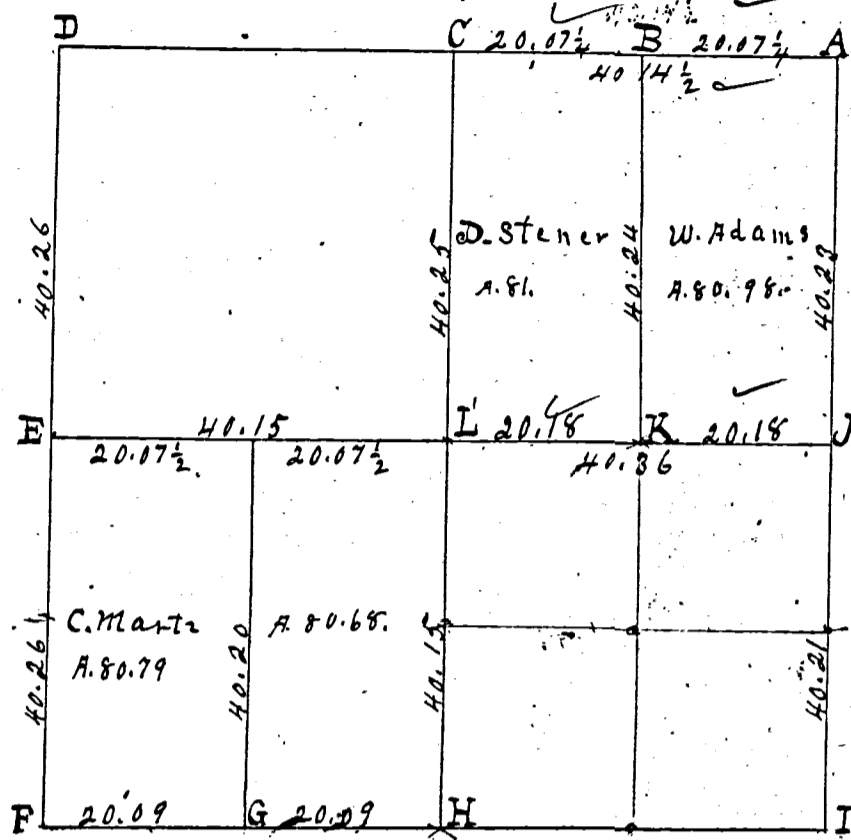 D C 20.07¼ B 20.07¼ A
40.14½
40.26
40.25
D. Stener
A. 81.
40.24
W. Adams
A. 80.98.
40.23
E 40.15 L 20.18 K 20.18 J
20.07½ 20.07½ 40.36
40.26
C. Martz
A. 80.79
40.20
A 80.68.
40.15
40.21
F 20.09 G 20.09 H I